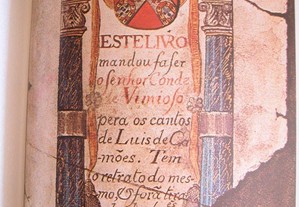 ESTE LIVRO
mandou faser
o senhor Conde
de Vimioso
pera os cantos
de Luis de Ca
mões. Tem
o retrato do mes
mo, & forã tira